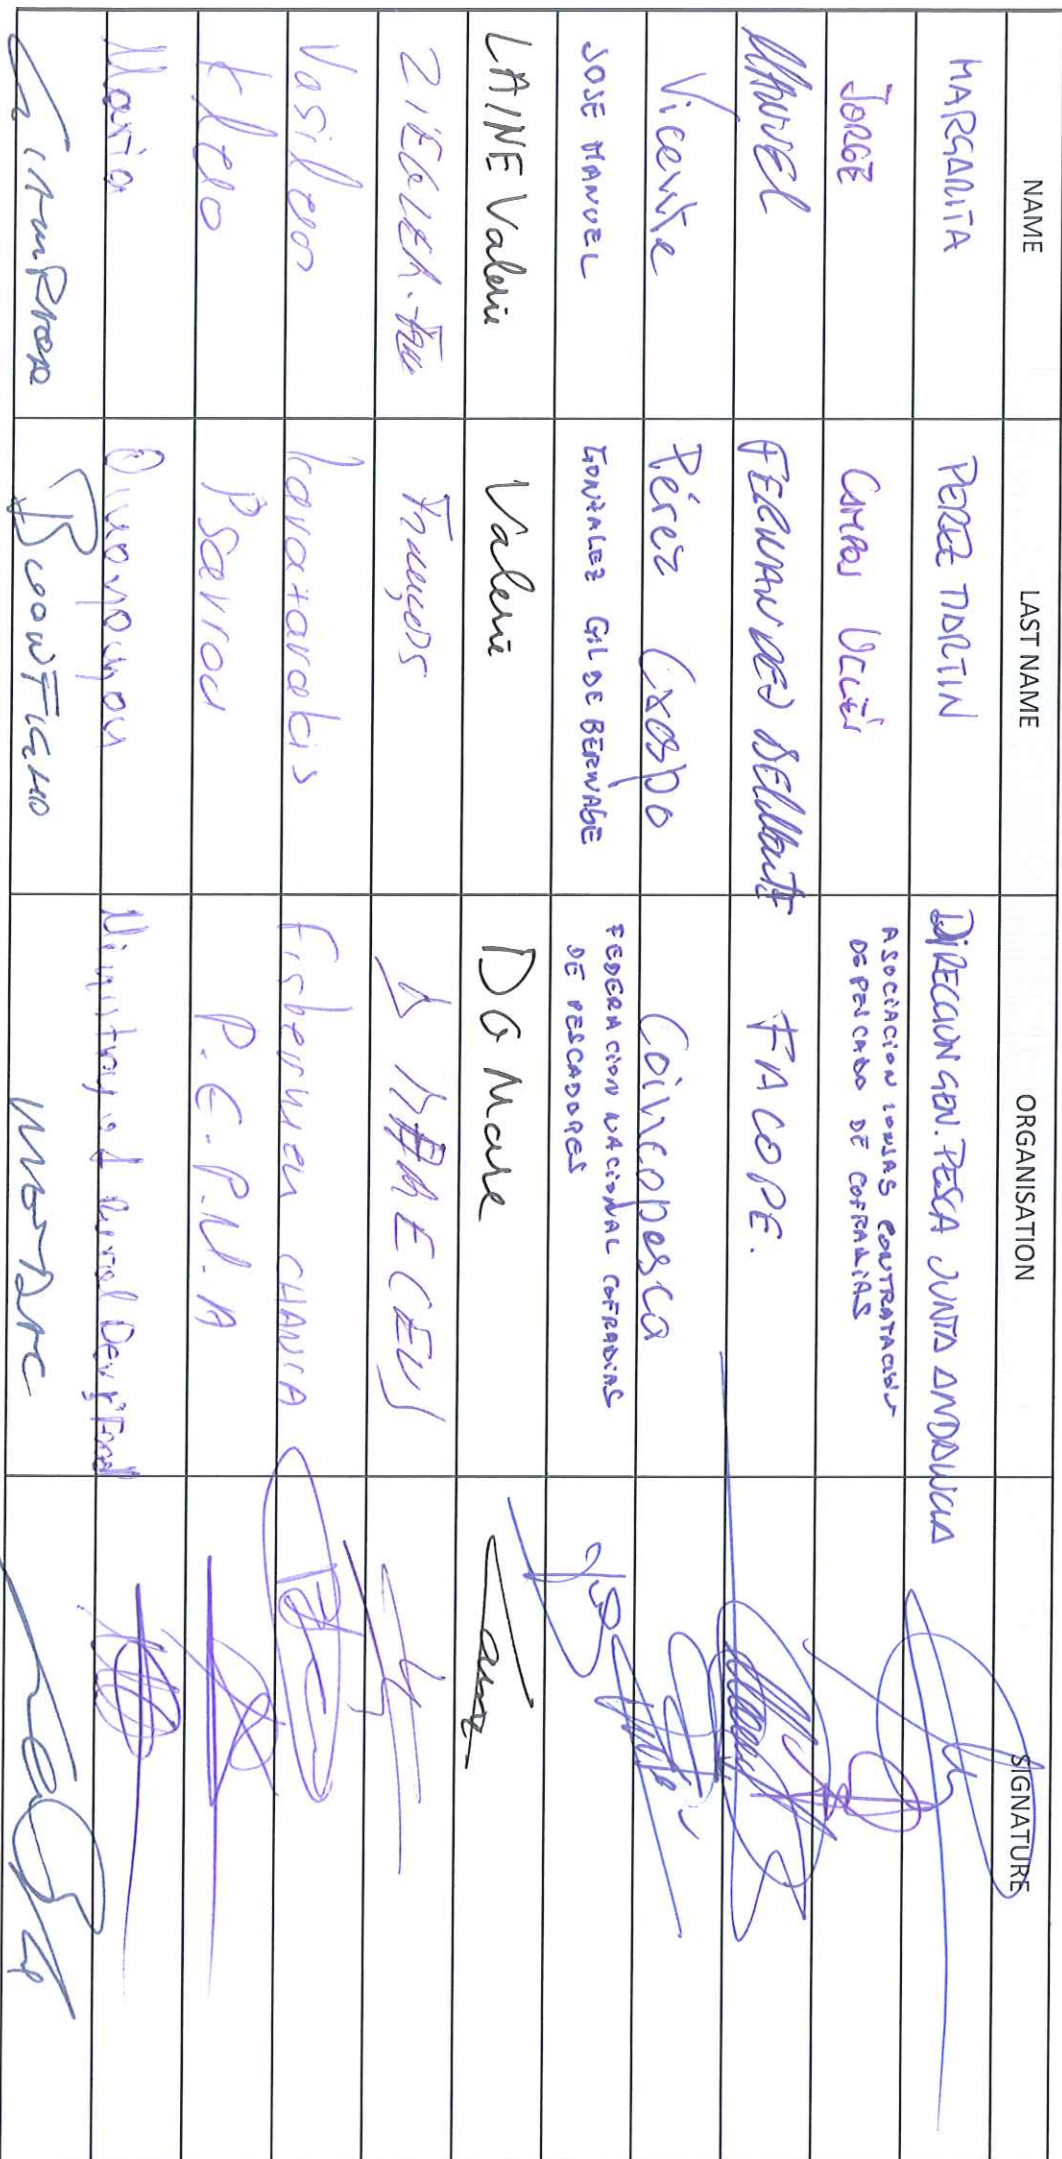 NAME LAST NAME ORGANISATION SIGNATURE
MARGARITA PEREZ MARTIN DIRECCION GEN. PESCA JUNTA ANDALUCIA
JORGE CAMPOS ASOCIACION LONJAS CONTRATACION
DE PESCADO DE COFRADIAS
MANUEL FERNANDEZ BELMONTE FACOPE.
Vicente Pérez Crespo Coincopesca
JOSE MANUEL GONZALEZ GIL DE BERNABE FEDERACION NACIONAL COFRADIAS
DE PESCADORES
LAINE Valerie Valerie DG Mare
François
Vasileios Fishermen CHANIA
Kleo Psarrou P.E.P.M.A
Maria Ministry of Rural Dev & Food
GIAMPAOLO BUONFIGLIO MEDAC